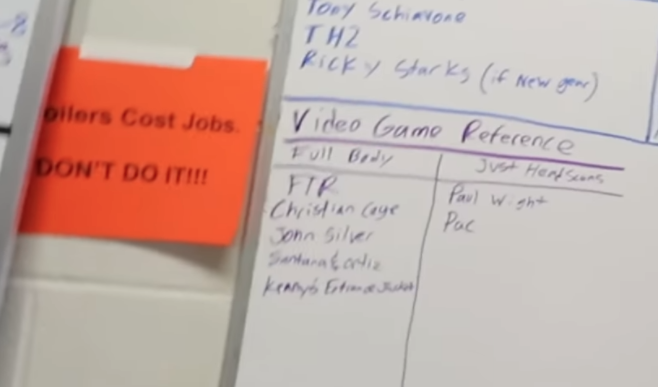 oilers Cost Jobs.
DON'T DO IT!!!
Tony Schiavone
TH2
Ricky Starks (if New gear)
Video Game Reference
Full Body
Just Head Scans
FTR
Paul Wight
Christian Cage
Pac
John Silver
Santana & Ortiz
Kenny's Entrance Jacket